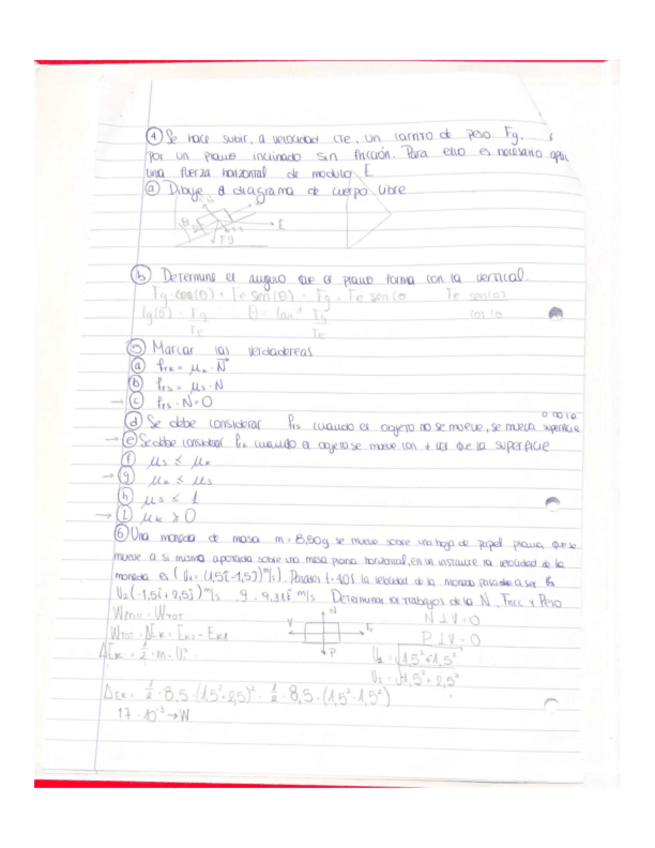 ④ Se hace subir, a velocidad cte, un carrito de peso Fg,
por un plano inclinado sin fricción. Para ello es necesario
una fuerza horizontal de modulo E
ⓐ Dibuje el diagrama de cuerpo libre
θ E
Fg
ⓑ Determine el angulo que el plano forma con la vertical.
Fg cos(θ) = Fe sen(θ) = Fg = Fe sen(θ Fe sen(θ)
tg(θ) = Fg θ = tan⁻¹ Fg cos(θ
Fe Fe
⑤ Marcar las verdaderas
ⓐ frk = μk · N
ⓑ frs = μs · N
→ ⓒ frs · N = 0
ⓓ Se debe considerar frs cuando el objeto no se mueve, se mueva o no la superficie
→ ⓔ Se debe considerar frk cuando el objeto se mueve con + vel que la superficie
ⓕ μs ≤ μk
→ ⓖ μk ≤ μs
ⓗ μs ≤ 1
→ ⓘ μk ≥ 0
⑥ Una moneda de masa m = 8,50g se mueve sobre una hoja de papel plana, que se
mueve a si misma apoyada sobre una mesa plana horizontal, en un instante la velocidad de la
moneda es (V₁ = (1,5î - 1,5ĵ) m/s). Pasados t = 10s la velocidad de la moneda pasa a ser
V₂ (-1,5î + 2,5ĵ) m/s g = 9,31 m/s Determinar los trabajos de la N, Fricc y Peso
= WTOT N N ⊥ V = 0
WTOT = ΔEk = Ek2 - Ek1 V P ⊥ V = 0
ΔEk = 1/2 · m · V² P V₁ = √1,5² + 1,5²
V₂ = √1,5² + 2,5²
ΔEk = 1/2 · 8,5 · (1,5² + 2,5)² - 1/2 · 8,5 · (1,5² · 1,5²)
17 · 10⁻³ → W